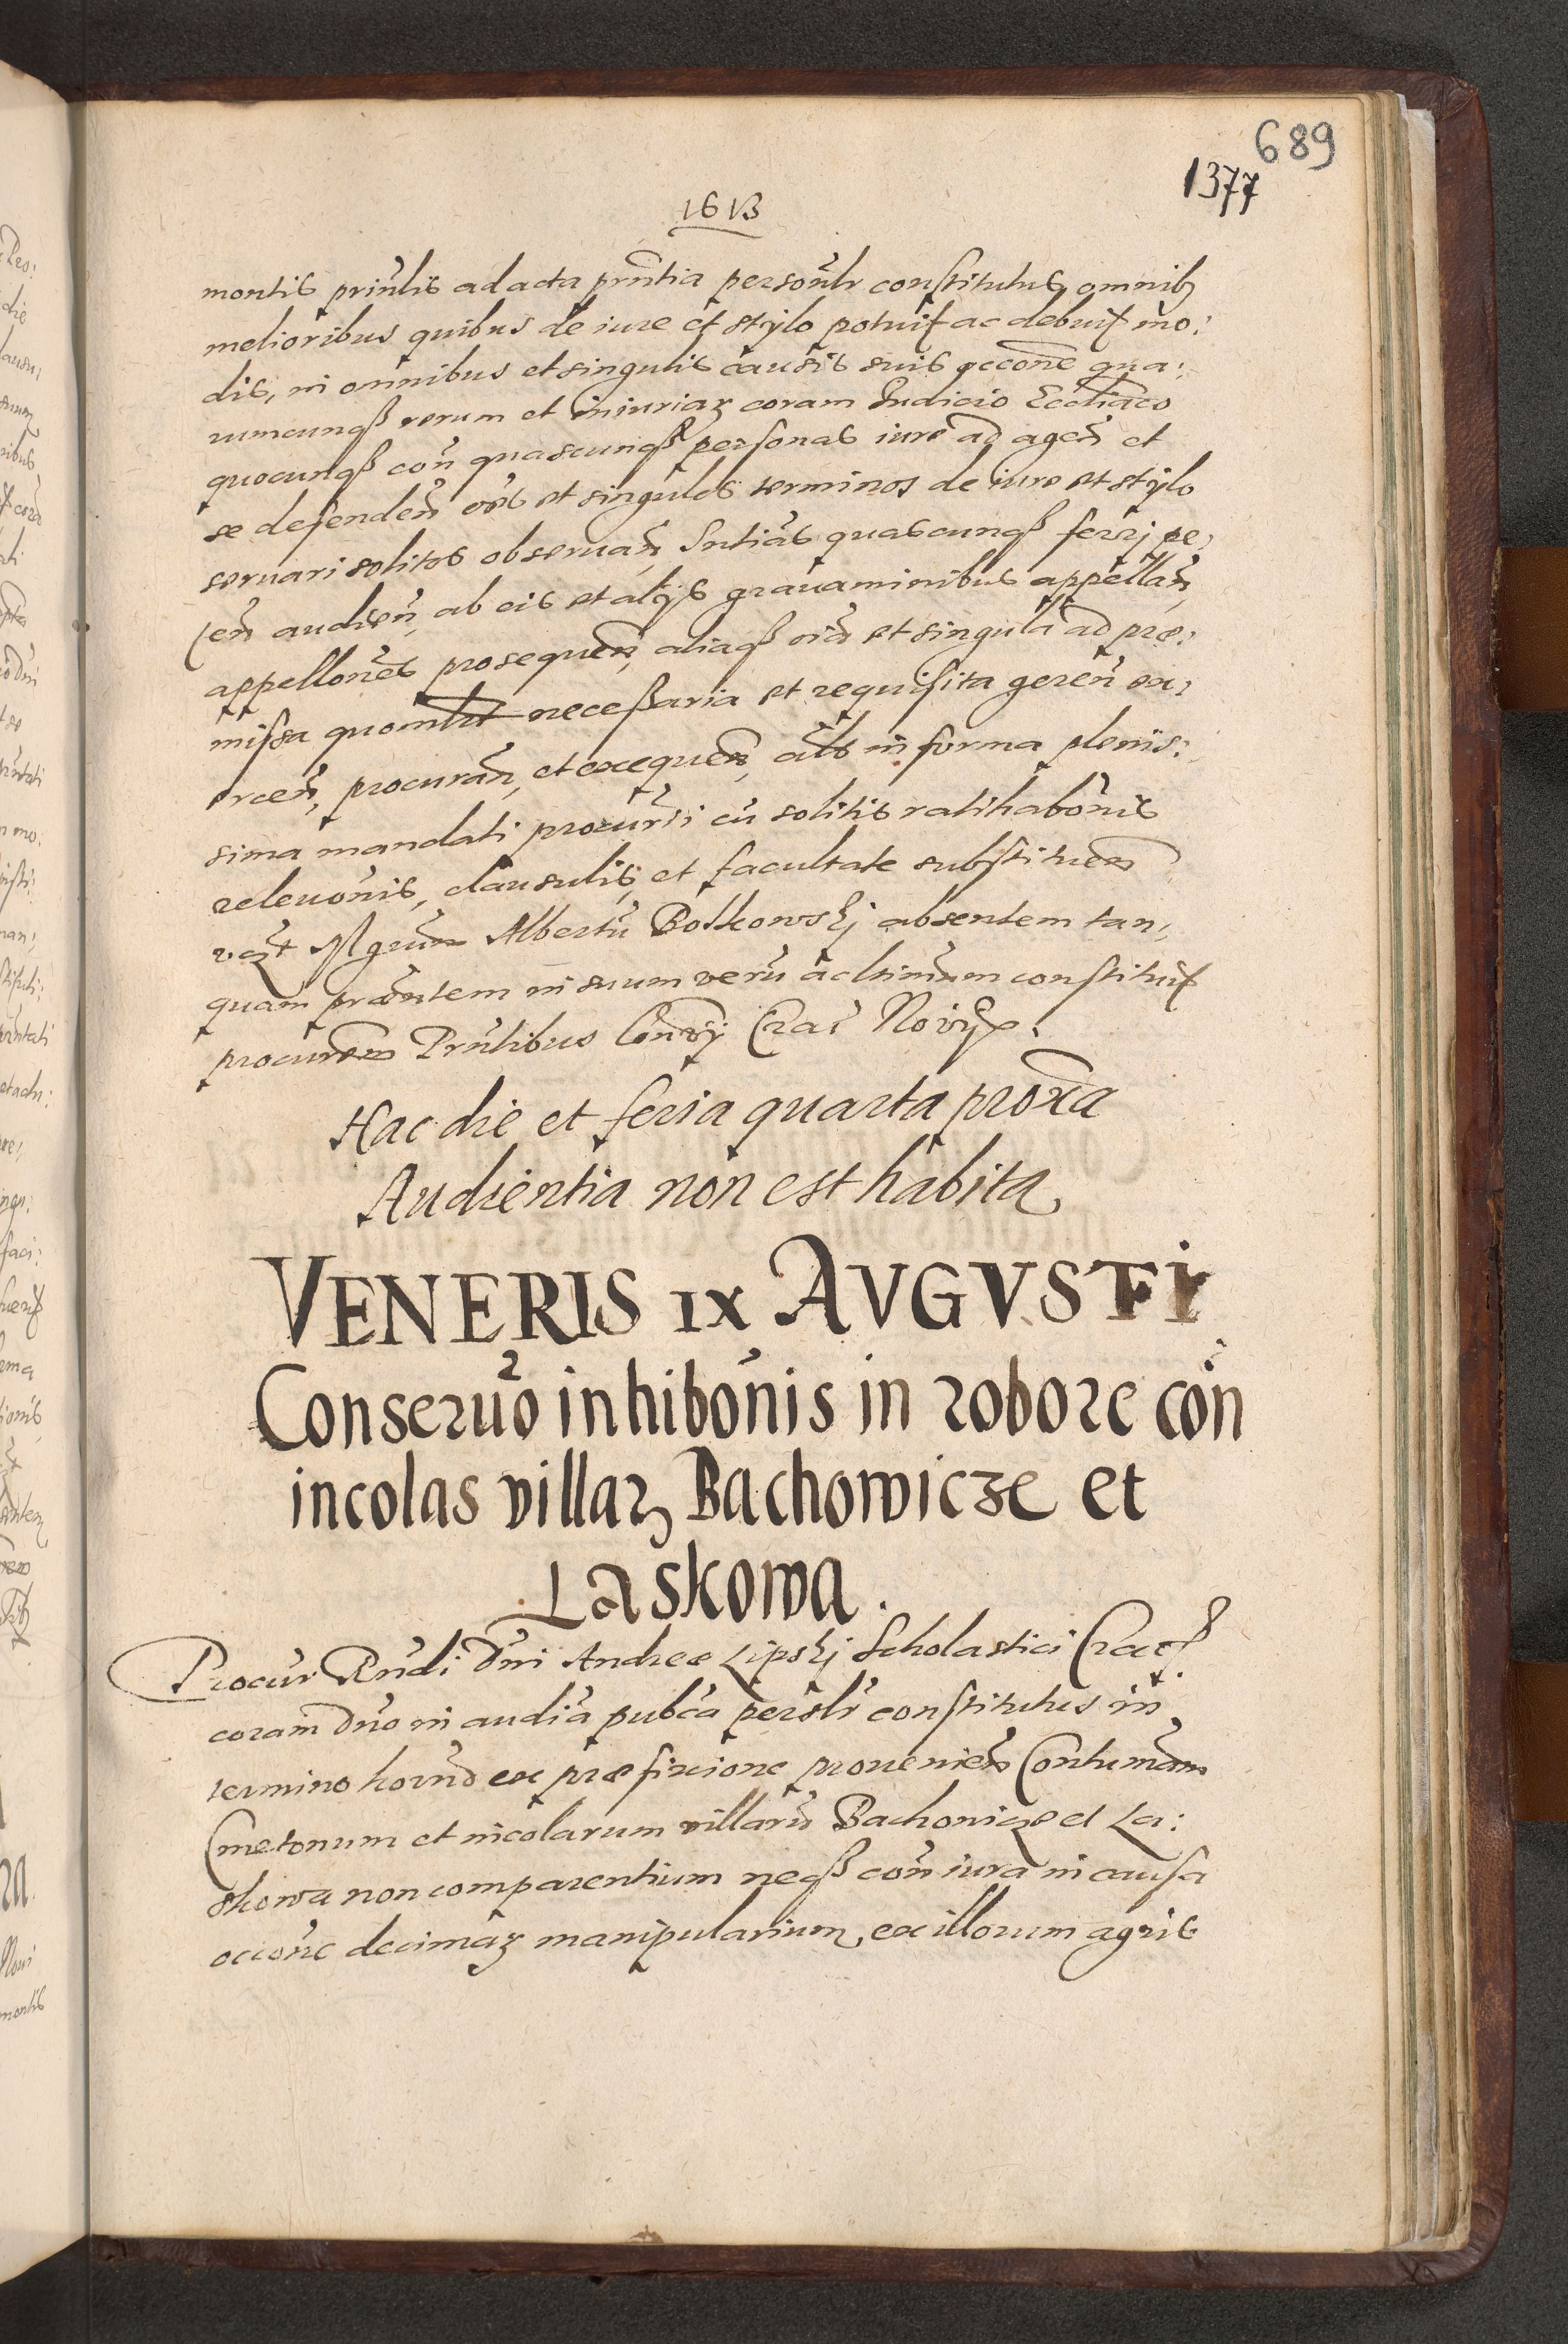 689
1377
1613
montis prinlis ad acta prntia personlr constitutus omnib9
melioribus quibus de iure et stylo potuit ac debuit mo:
dis, in omnibus et singulis causis suis occone qua:
rumcunqȝ rerum et iniuriaꝝ coram Iudicio Eccliaco
quocunqȝ con quascunqȝ personas iure ad agen et
se defenden oes et singulos terminos de iure et stylo
seruari solitos obseruan, Sntias quascunqȝ ferri pe:
ten audien, ab eis et alijs grauaminibus appellan,
appellones prosequen, aliaqȝ oia et singula ad prae:
missa quomlt necessaria et requisita geren ex:
ercen, procuran, et exequen, als in forma plenis:
sima mandati procurii cu solitis ratihabonis
releuonis, clausulis, et facultate substituen
Albertu Bolkowskj absentem tan:
quam praesntem in suum veru ac ltimum constituit
procurem Prntibus
Hac die et feria quarta proxa
Audientia non est habita
VENERIS IX AVGVSTI
Conseruo inhibonis in robore con
incolas villaꝝ Bachowicze et
Laskowa.
Procur Rndi Dni Andreae Lipskj Scholastici Crac
coram Dno in audia publca persolr constitutus in
termino horno ex praefixione prouenien Contumam
Cmetonum et incolarum villaru Bachowicze et La:
skowa non comparentium neqȝ con iura in causa
occone decimaꝝ manipularium ex illorum agris